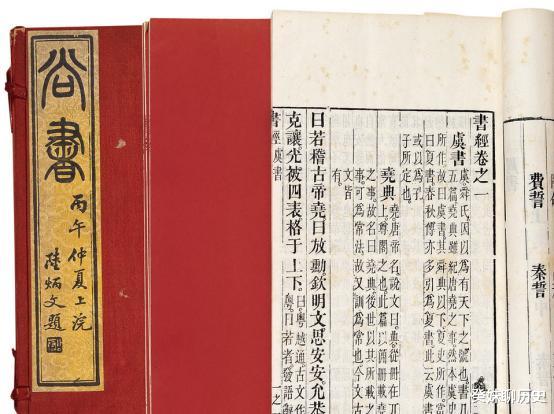 尚書
丙午仲夏上浣
陸炳文題
費誓
秦誓
書經卷之一
虞書
虞舜氏因以為有天下之號也書凡
五篇堯典雖紀唐堯之事然本虞史
所作故曰虞書其舜典以下夏史所作當
曰夏書春秋傳亦多引為夏書此云虞書
或以為孔
子所定也
堯典
堯唐帝名說文曰典從冊在丌
上尊閣之也此篇以簡冊載堯
之事故名曰堯典後世以其所載之
事可為常法故又訓為常也今文古
文皆
曰若稽古帝堯曰放勳欽明文思安安允恭
克讓光被四表格于上下
曰粵越通古文作
粵曰若者發語辭
書經 虞書
聊历史